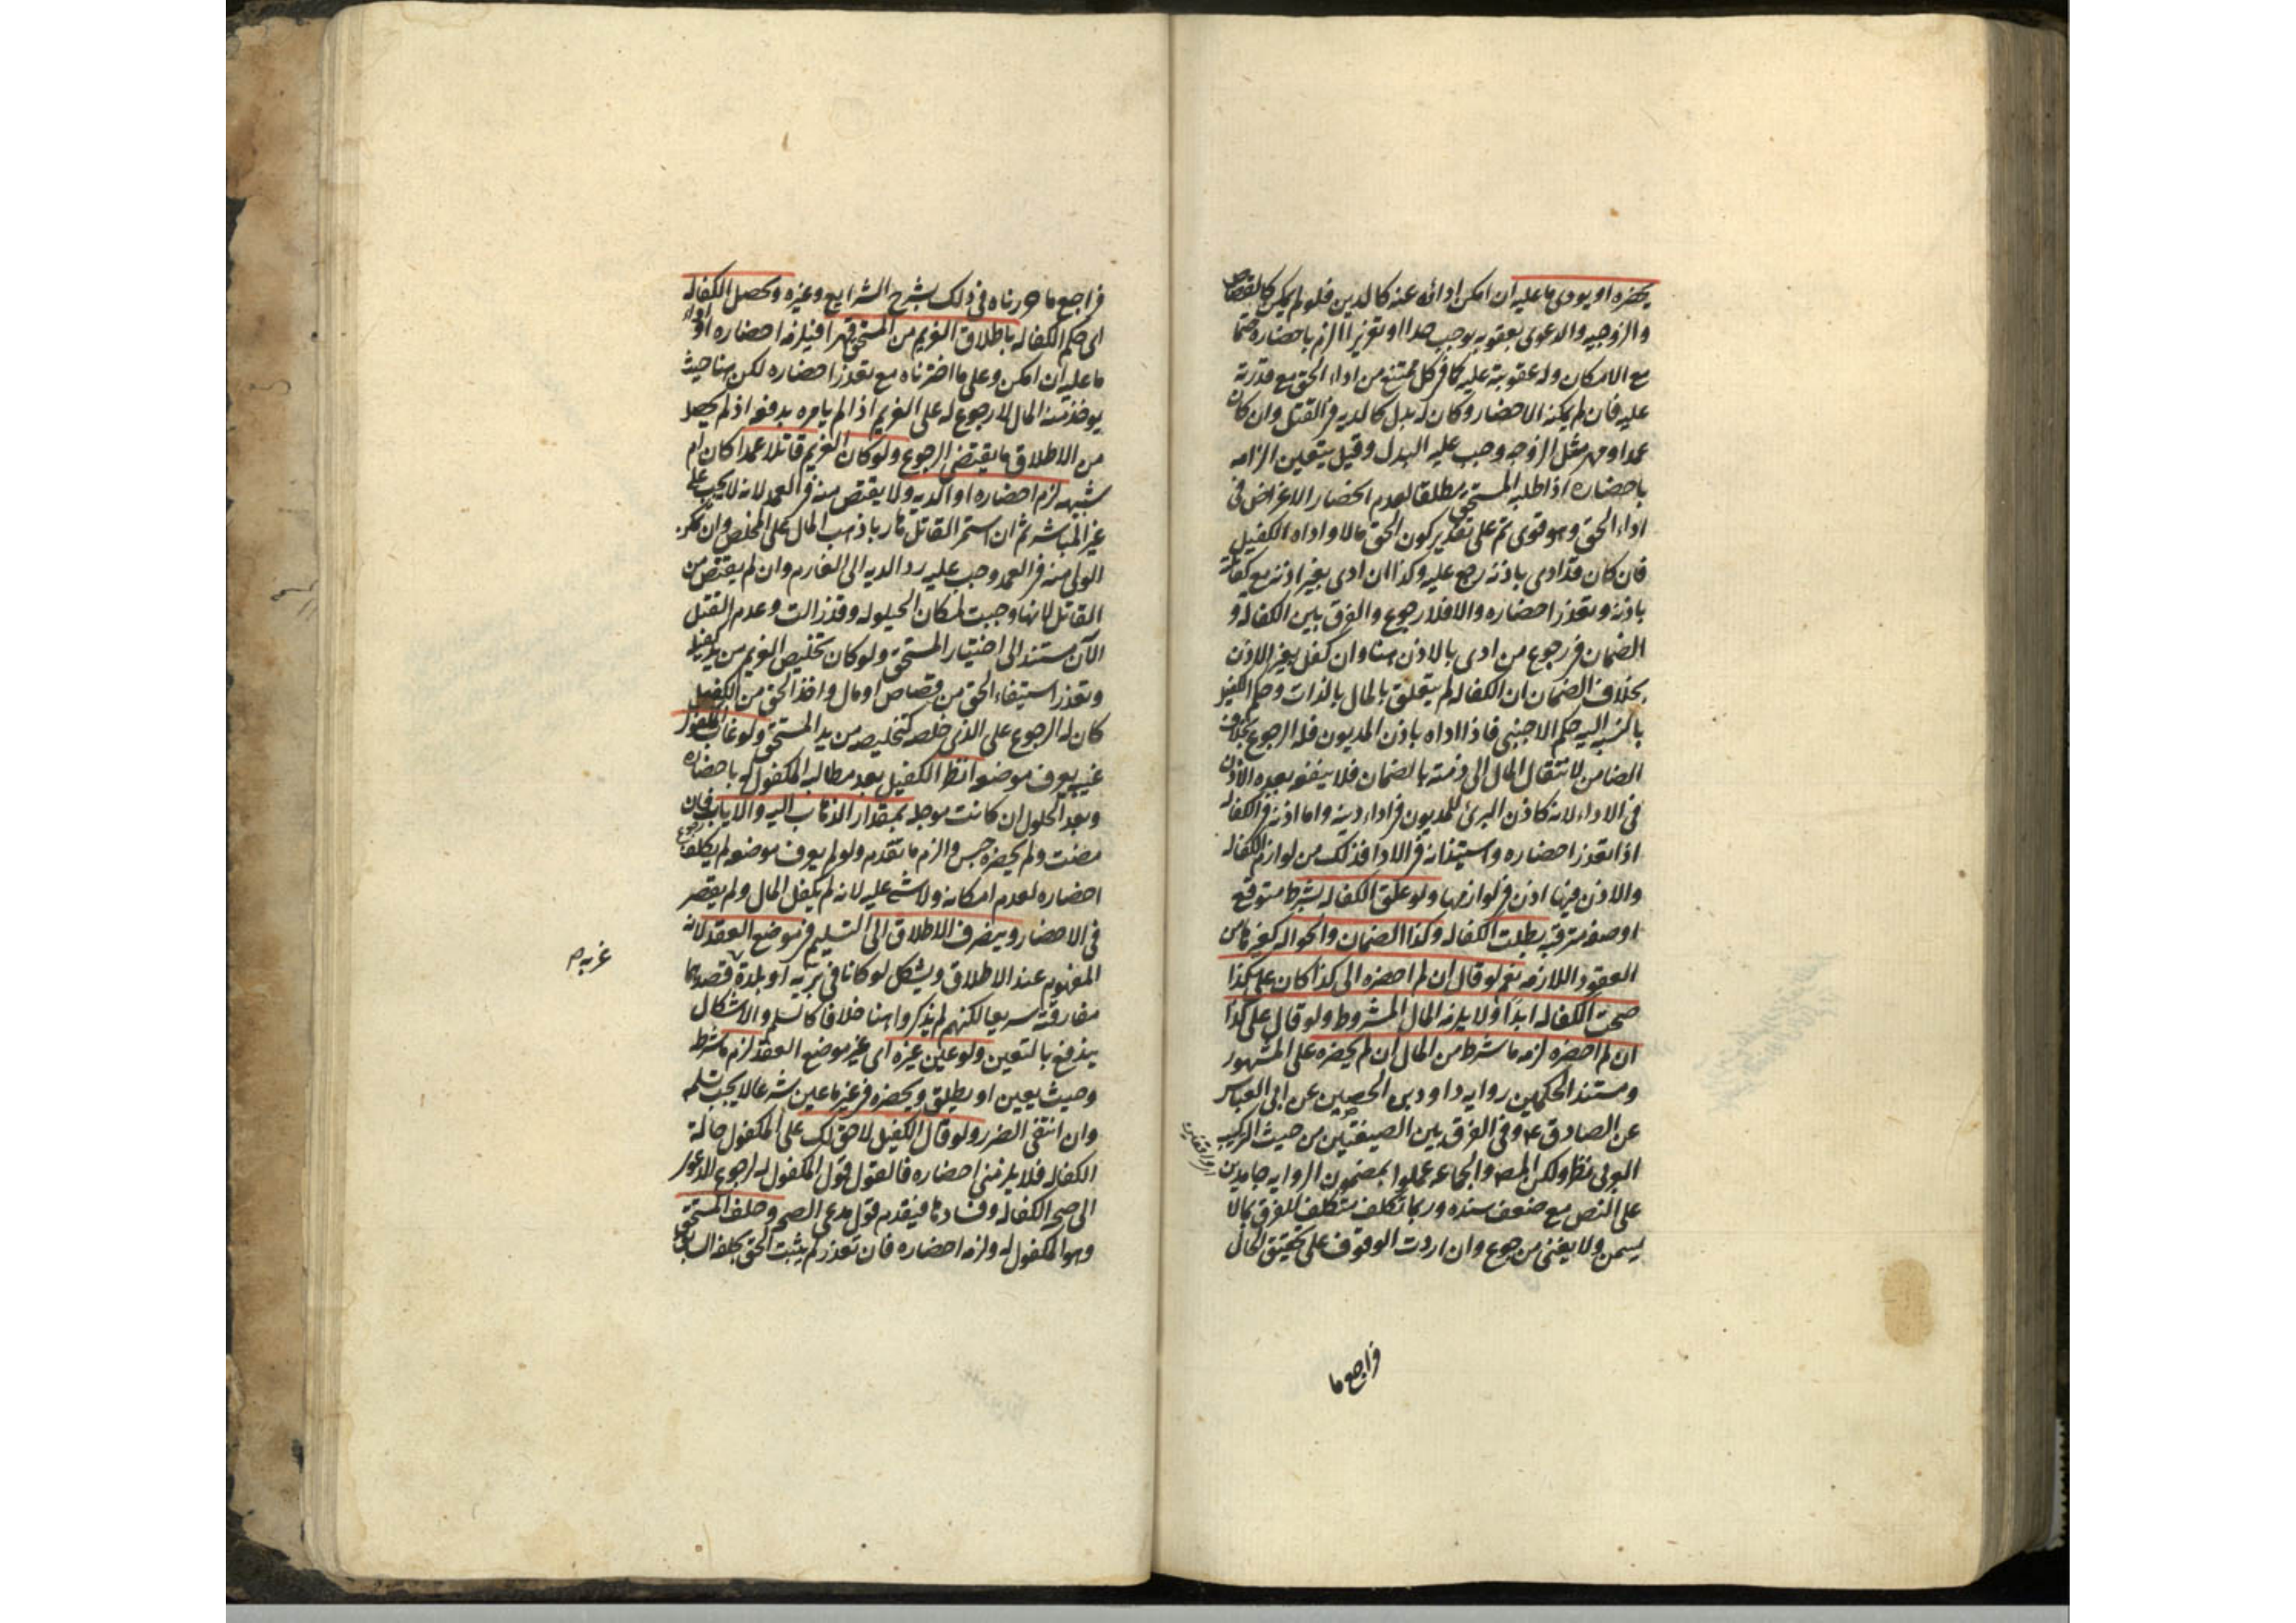 يحضره او يودى ما عليه ان امكن ادائه عنه كالدين فلو لم يمكن كالقصاص
والزوجيه والدعوى بعقوبه يوجب حدا او تعزيرا الزم باحضاره حتما
مع الامكان وله عقوبته عليه كما فى كل ممتنع من اداء الحق مع قدرته
عليه فان لم يمكنه الاحضار وكان له بدل كالديه فى القتل وان كان
عمدا و مهر مثل الزوجه وجب عليه البدل وقيل يتعين الزامه
باحضاره اذا طلبه المستحق مطلقا لعدم انحصار الاغراض فى
اداء الحق وهو قوى ثم على تقدير كون الحق مالا واداه الكفيل
فان كان قد ادى باذنه رجع عليه وكذا ان ادى بغير اذنه مع كفالته
باذنه وتعذر احضاره والا فلا رجوع والفرق بين الكفاله و
الضمان فى رجوع من ادى بالاذن هنا وان كفل بغير الاذن
بخلاف الضمان ان الكفاله لم يتعلق بالمال بالذات وحكم الكفيل
بالنسبه اليه حكم الاجنبى فاذا اداه باذن المديون فله الرجوع بخلاف
الضامن لانتقال المال الى ذمته بالضمان فلا ينفعه بعده الاذن
فى الاداء لانه كاذن البرئ للمديون فى اداء دينه واما اذنه فى الكفاله
اذا تعذر احضاره واستيذانه فى الادا فذلك من لوازم الكفاله
والاذن فيها اذن فى لوازمها ولو علق الكفاله بشرط متوقع
او صفه مترقبه بطلت الكفاله وكذا الضمان والحواله كغيرها من
العقود اللازمه نعم لو قال ان لم احضره الى كذا كان على كذا
صحت الكفاله ابدا ولا يلزمه المال المشروط ولو قال على كذا
ان لم احضره لزمه ما شرط من المال ان لم يحضره على المشهور
ومستند الحكمين روايه داود بن الحصين عن ابى العباس
عن الصادق ع وفى الفرق بين الصيغتين من حيث التركيب
العربى نظر ولكن المص والجماعه عملوا بمضمون الروايه جامدين
على النص مع ضعف سنده وربما تكلف متكلف للفرق بمالا
يسمن ولا يغنى من جوع وان اردت الوقوف على تحقيق الحال
فراجع ما
فراجع ما حررناه فى ذلك بشرح الشرايع وغيره وتحصل الكفاله
اى حكم الكفاله باطلاق الغريم من المستحق قهرا فيلزمه احضاره او اداء
ما عليه ان امكن وعلى ما اخترناه مع تعذر احضاره لكن هنا حيث
يوخذ منه المال لا رجوع له على الغريم اذا لم يامره بدفعه اذ لم يحصل
من الاطلاق ما يقتضى الرجوع ولو كان الغريم قاتلا عمدا كان ام
شبهه لزم احضاره او الديه ولا يقتص منه فى العمد لانه لا يجب على
غير المباشر ثم ان استمر القاتل هاربا ذهب المال على المخلص وان تمكن
الولى منه فى العمد وجب عليه رد الديه الى الغارم وان لم يقتص من
القاتل لانها وجبت لمكان الحيلوله وقد زالت وعدم القتل
الآن مستند الى اختيار المستحق ولو كان تخليص الغريم من يد كفيله
وتعذر استيفاء الحق من قصاص او مال واخذ الحق من الكفيل
كان له الرجوع على الذى خلصه كتخليصه من يد المستحق ولو غاب المكفول
غيبه يعرف موضعه انظر الكفيل بعد مطالبه المكفول له باحضاره
وبعد الحلول ان كانت موجله بمقدار الذهاب اليه والاياب فان
مضت ولم يحضره حبس والزم ما تقدم ولو لم يعرف موضعه لم يكلف
احضاره لعدم امكانه ولا شى عليه لانه لم يكفل المال ولم يقصر
فى الاحضار وينصرف الاطلاق الى التسليم فى موضع العقد لانه
المفهوم عند الاطلاق ويشكل لو كانا فى بريه او بلدة قصدهما
غربه م
مفارقته سريعا لكنهم لم يذكروا هنا خلافا كالسلم والاشكال
يندفع بالتعيين ولو عين غيره اى غير موضع العقد لزم ما شرط
وحيث يعين او يطلق ويحضره فى غير ما عين شرعا لا يجب تسلمه
وان انتفى الضرر ولو قال الكفيل لا حق لك على المكفول حالة
الكفاله فلا يلزمنى احضاره فالقول قول المكفول له لرجوع الدعوى
الى صحه الكفاله وفسادها فيقدم قول مدعى الصحه وحلف المستحق
وهو المكفول له ولزمه احضاره فان تعذر لم يثبت الحق بحلفه السابق